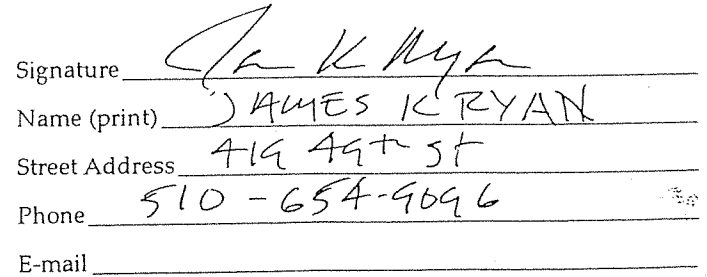 Signature Jam K Ryan
Name (print) JAMES K RYAN
Street Address 419 49th st
Phone 510-654-9096
E-mail